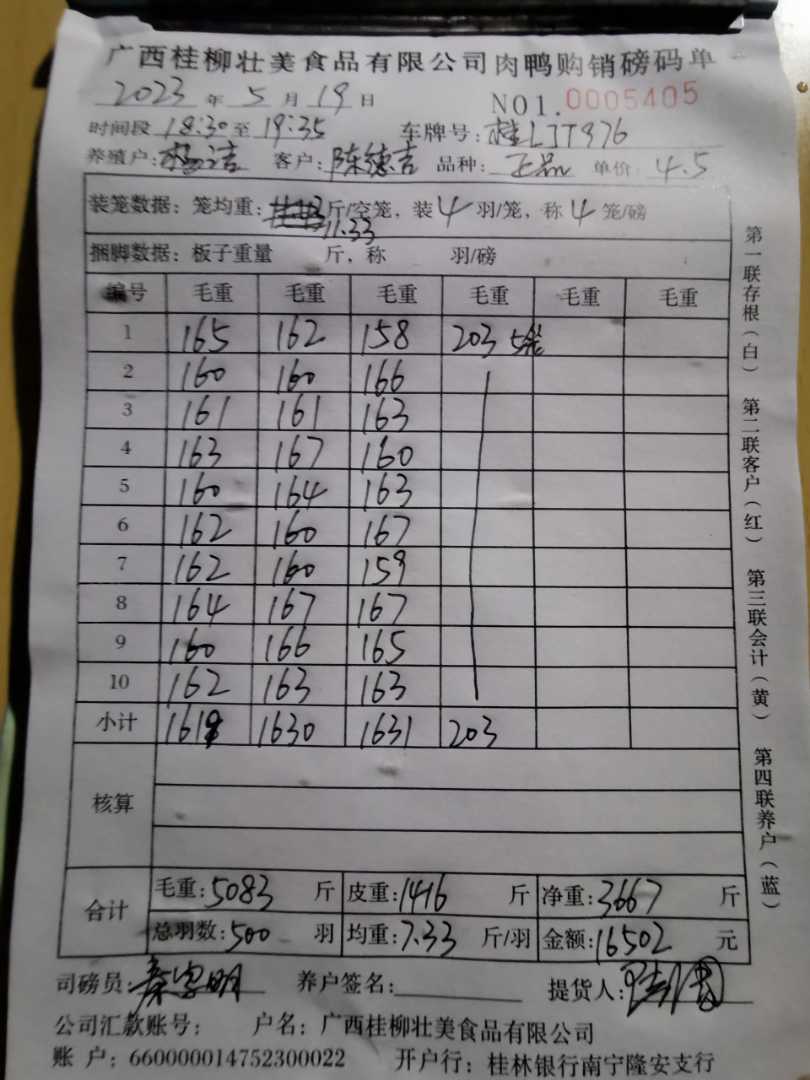 广西桂柳壮美食品有限公司肉鸭购销磅码单
2023 年 5 月 19 日 NO1.0005405
时间段 18:30 至 19:35 车牌号: 桂LJT976
养殖户: 杨洁 客户: 陈德吉 品种: 正品 单价: 4.5
装笼数据: 笼均重: 11.33 斤/空笼, 装 4 羽/笼, 称 4 笼/磅
捆脚数据: 板子重量 斤, 称 羽/磅
编号 毛重 毛重 毛重 毛重 毛重 毛重
1 165 162 158 203 5笼
2 160 160 166
3 161 161 163
4 163 167 160
5 160 164 163
6 162 160 167
7 162 160 159
8 164 167 167
9 160 166 165
10 162 163 163
小计 1619 1630 1631 203
核算
合计 毛重: 5083 斤 皮重: 1416 斤 净重: 3667 斤
总羽数: 500 羽 均重: 7.33 斤/羽 金额: 16502 元
司磅员: 养户签名: 提货人:
公司汇款账号: 户名: 广西桂柳壮美食品有限公司
账 户: 660000014752300022 开户行: 桂林银行南宁隆安支行
第一联存根(白) 第二联客户(红) 第三联会计(黄) 第四联养户(蓝)